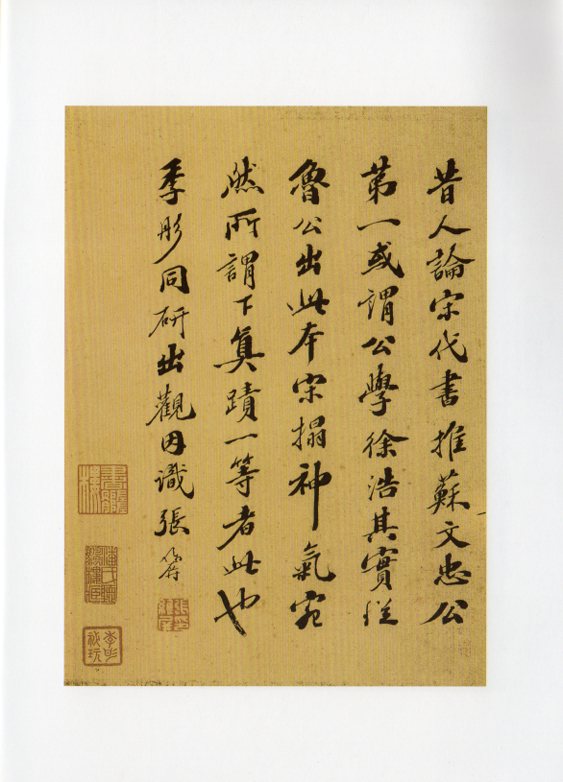 昔人論宋代書推蘇文忠公
第一或謂公學徐浩其實從
魯公出此本宋搨神氣宛
然所謂下真蹟一等者此也
季彤同研出觀因識張
季彤秘玩